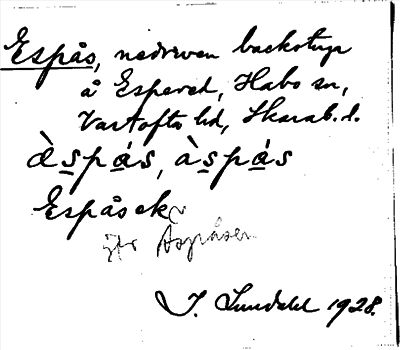 Espås, nedriven backstuga
å Espered, Habo sn,
Vartofta hd, Skarab. l.
àspås, àspås
Espåsek
jfr Aspåsen
J. Sundahl 1928.